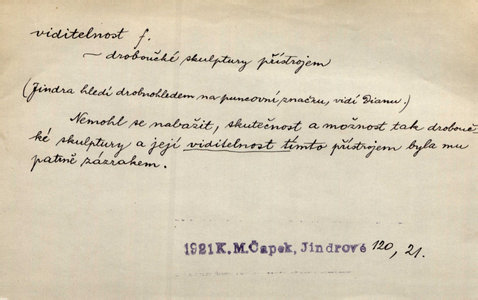 viditelnost f.
~ droboučké skulptury přístrojem
(Jindra hledí drobnohledem na puncovní značku, vidí Dianu.)
Nemohl se nabažit, skutečnost a možnost tak drobouč-
ké skulptury a její viditelnost tímto přístrojem byla mu
patrně zázrakem.
1921 K. M. Čapek, Jindrové 120, 21.